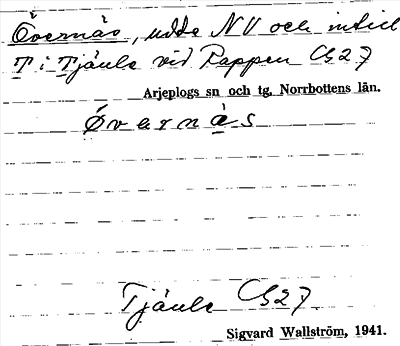 Övernäs, udde NV och intill
T i Tjåule vid Rappen Cs27
Arjeplogs sn och tg, Norrbottens län.
Övernàs
Tjåule Cs27
Sigvard Wallström, 1941.